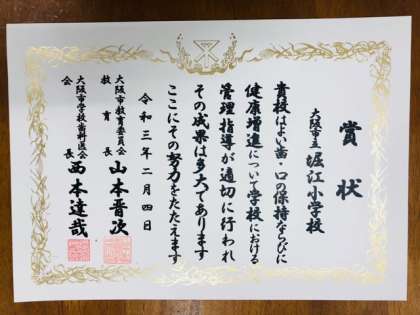 賞状
大阪市立 堀江小学校
貴校はよい歯・口の保持ならびに
健康増進について学校における
管理指導が適切に行われ
その成果は多大であります
ここにその努力をたたえます
令和三年二月四日
大阪市教育委員会
教育長 山本晋次
大阪市学校歯科医会
会長 西本達哉